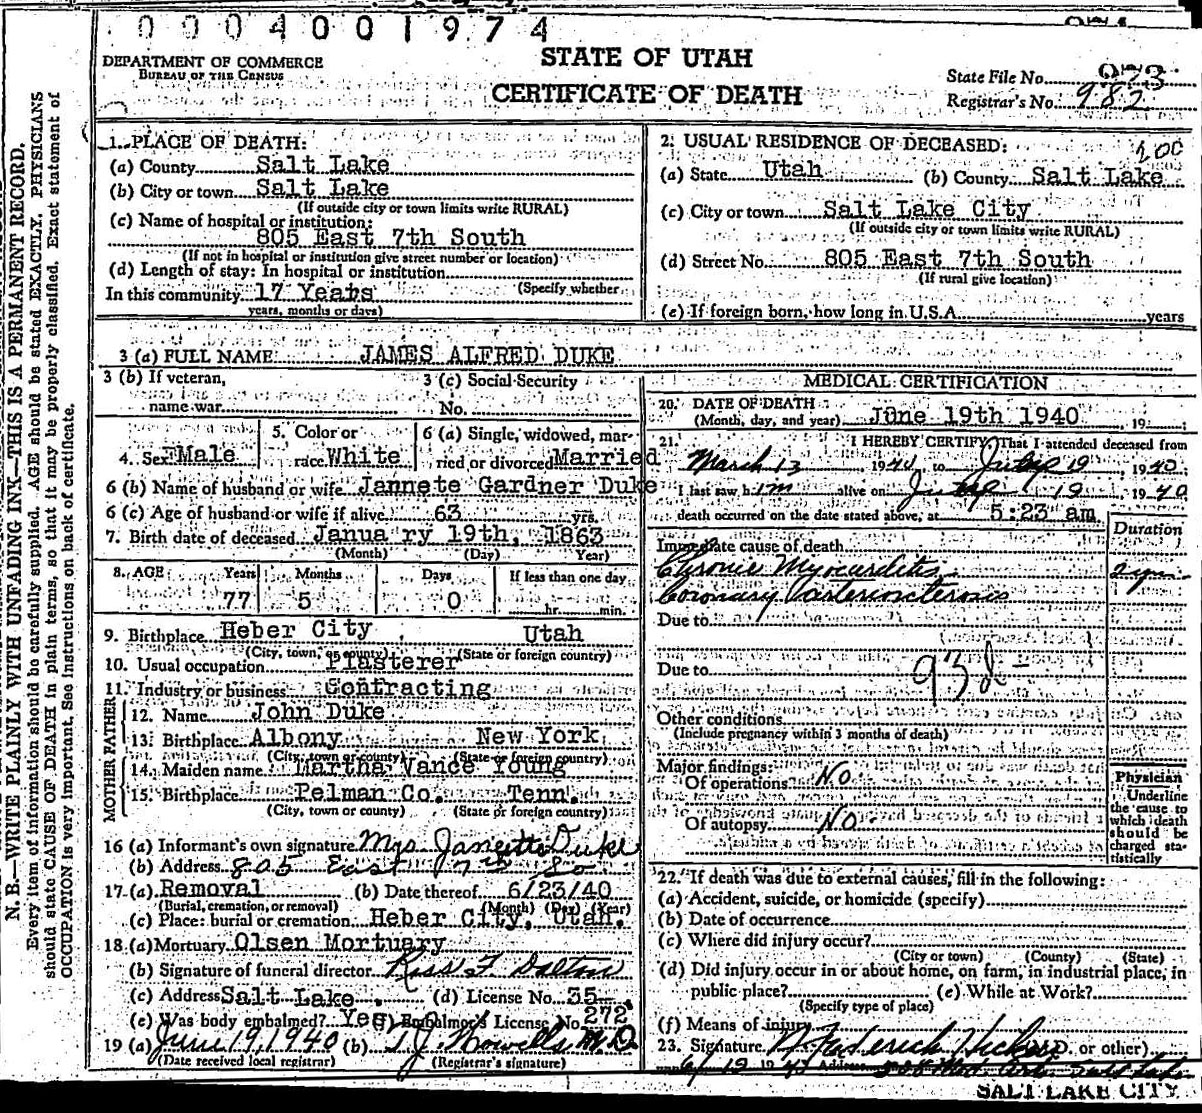 0004001974
DEPARTMENT OF COMMERCE
BUREAU OF THE CENSUS
STATE OF UTAH
CERTIFICATE OF DEATH
State File No. 923
Registrar's No. 982
N. B.—WRITE PLAINLY WITH UNFADING INK—THIS IS A PERMANENT RECORD.
Every item of information should be carefully supplied. AGE should be stated EXACTLY. PHYSICIANS
should state CAUSE OF DEATH in plain terms, so that it may be properly classified. Exact statement of
OCCUPATION is very important. See instructions on back of certificate.
1. PLACE OF DEATH:
(a) County Salt Lake
(b) City or town Salt Lake
(If outside city or town limits write RURAL)
(c) Name of hospital or institution:
805 East 7th South
(If not in hospital or institution give street number or location)
(d) Length of stay: In hospital or institution
(Specify whether
In this community 17 Years
years, months or days)
2. USUAL RESIDENCE OF DECEASED: 200
(a) State Utah (b) County Salt Lake
(c) City or town Salt Lake City
(If outside city or town limits write RURAL)
(d) Street No. 805 East 7th South
(If rural give location)
(e) If foreign born, how long in U.S.A. years
3 (a) FULL NAME: JAMES ALFRED DUKE
3 (b) If veteran, name war
3 (c) Social Security No.
4. Sex Male
5. Color or race White
6 (a) Single, widowed, married or divorced Married
6 (b) Name of husband or wife Jannete Gardner Duke
6 (c) Age of husband or wife if alive 63 yrs.
7. Birth date of deceased January 19th, 1863
(Month) (Day) Year)
8. AGE Years Months Days If less than one day
77 5 0 hr. min.
9. Birthplace Heber City, Utah
(City, town, or county) (State or foreign country)
10. Usual occupation Plasterer
11. Industry or business Contracting
FATHER
12. Name John Duke
13. Birthplace Albony New York
(City, town or county) (State or foreign country)
MOTHER
14. Maiden name Martha Vance Young
15. Birthplace Pelman Co. Tenn.
(City, town or county) (State or foreign country)
16 (a) Informant's own signature Mrs Janette Duke
(b) Address 805 East 7th So.
17. (a) Removal (b) Date thereof 6/23/40
(Burial, cremation, or removal) (Month) (Day) (Year)
(c) Place: burial or cremation Heber City, Utah.
18. (a) Mortuary Olsen Mortuary
(b) Signature of funeral director Ross F Dalton
(c) Address Salt Lake. (d) License No. 35
(e) Was body embalmed? Yes (f) Embalmer's License No. 272
19 (a) June 19, 1940 (b) T J. Howells M.D.
(Date received local registrar) (Registrar's signature)
MEDICAL CERTIFICATION
20. DATE OF DEATH
(Month, day, and year) June 19th 1940, 19
21. I HEREBY CERTIFY, That I attended deceased from
March 13 1940, to June 19, 1940.
I last saw him alive on June 19 1940
death occurred on the date stated above, at 5:23 am
Duration
Immediate cause of death
Chronic Myocarditis 2 yrs
Coronary Arteriosclerosis
Due to
Due to 93 d
Other conditions
(Include pregnancy within 3 months of death)
Major findings:
Of operations No
Of autopsy No.
Physician
Underline
the cause to
which death
should be
charged sta-
tistically
22. If death was due to external causes, fill in the following:
(a) Accident, suicide, or homicide (specify)
(b) Date of occurrence
(c) Where did injury occur?
(City or town) (County) (State)
(d) Did injury occur in or about home, on farm, in industrial place, in
public place? (e) While at Work?
(Specify type of place)
(f) Means of injury
23. Signature N. Frederick Hicken (M.D. or other)
6/19 1940 Address 500 Med. Arts. Salt Lake
SALT LAKE CITY